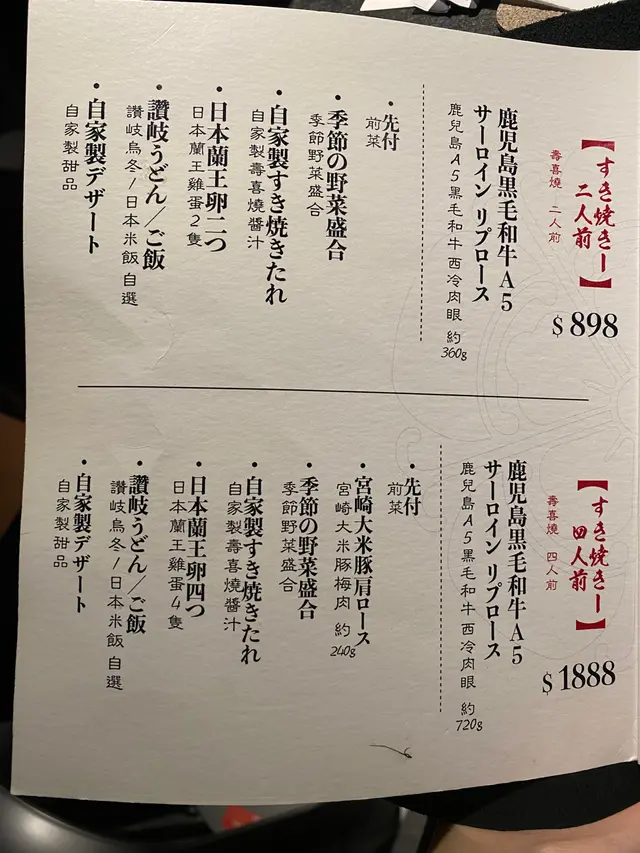 【すき焼きー
二人前】
壽喜燒 二人前
$898
鹿児島黒毛和牛A5
サーロイン リブロース
鹿兒島A5黑毛和牛 西冷肉眼 約
360g
・先付
前菜
・季節の野菜盛合
季節野菜盛合
・自家製すき焼きたれ
自家製壽喜燒醬汁
・日本蘭王卵二つ
日本蘭王雞蛋2隻
・讃岐うどん/ご飯
讚岐烏冬/日本米飯 自選
・自家製デザート
自家製甜品
【すき焼きー
四人前】
壽喜燒 四人前
$1888
鹿児島黒毛和牛A5
サーロイン リブロース
鹿兒島A5黑毛和牛 西冷肉眼 約
720g
・先付
前菜
・宮崎大米豚肩ロース
宮崎大米豚梅肉 約
240g
・季節の野菜盛合
季節野菜盛合
・自家製すき焼きたれ
自家製壽喜燒醬汁
・日本蘭王卵四つ
日本蘭王雞蛋4隻
・讃岐うどん/ご飯
讚岐烏冬/日本米飯 自選
・自家製デザート
自家製甜品